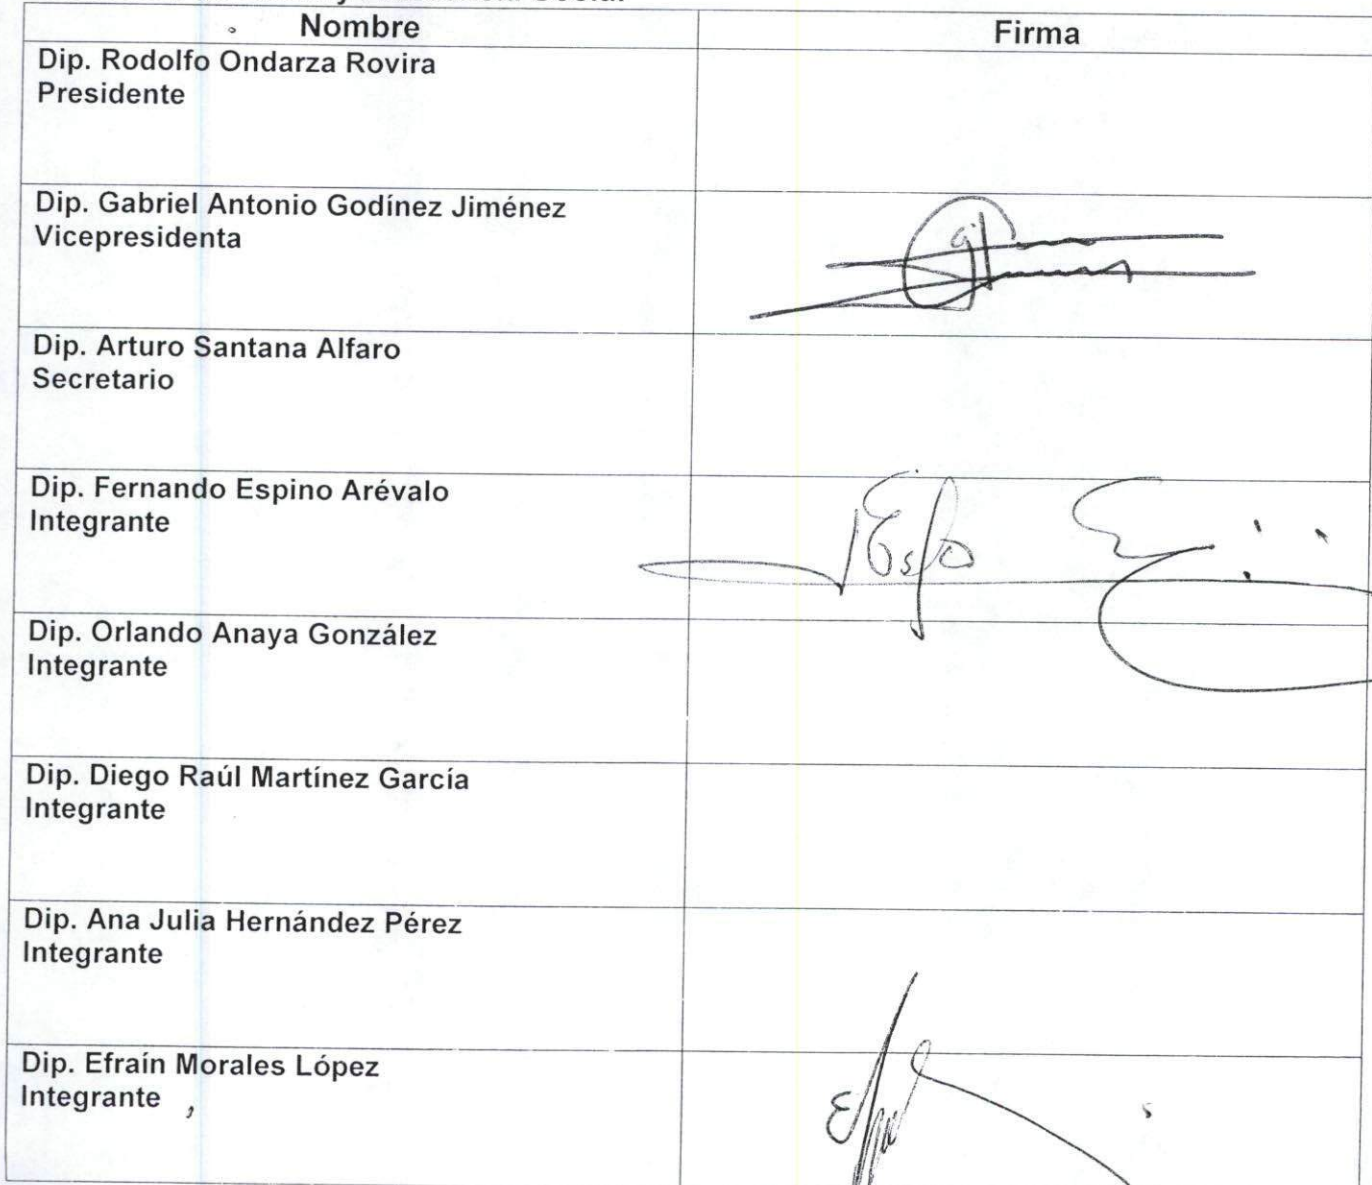 Nombre
Firma
Dip. Rodolfo Ondarza Rovira
Presidente
Dip. Gabriel Antonio Godínez Jiménez
Vicepresidenta
Dip. Arturo Santana Alfaro
Secretario
Dip. Fernando Espino Arévalo
Integrante
Dip. Orlando Anaya González
Integrante
Dip. Diego Raúl Martínez García
Integrante
Dip. Ana Julia Hernández Pérez
Integrante
Dip. Efraín Morales López
Integrante